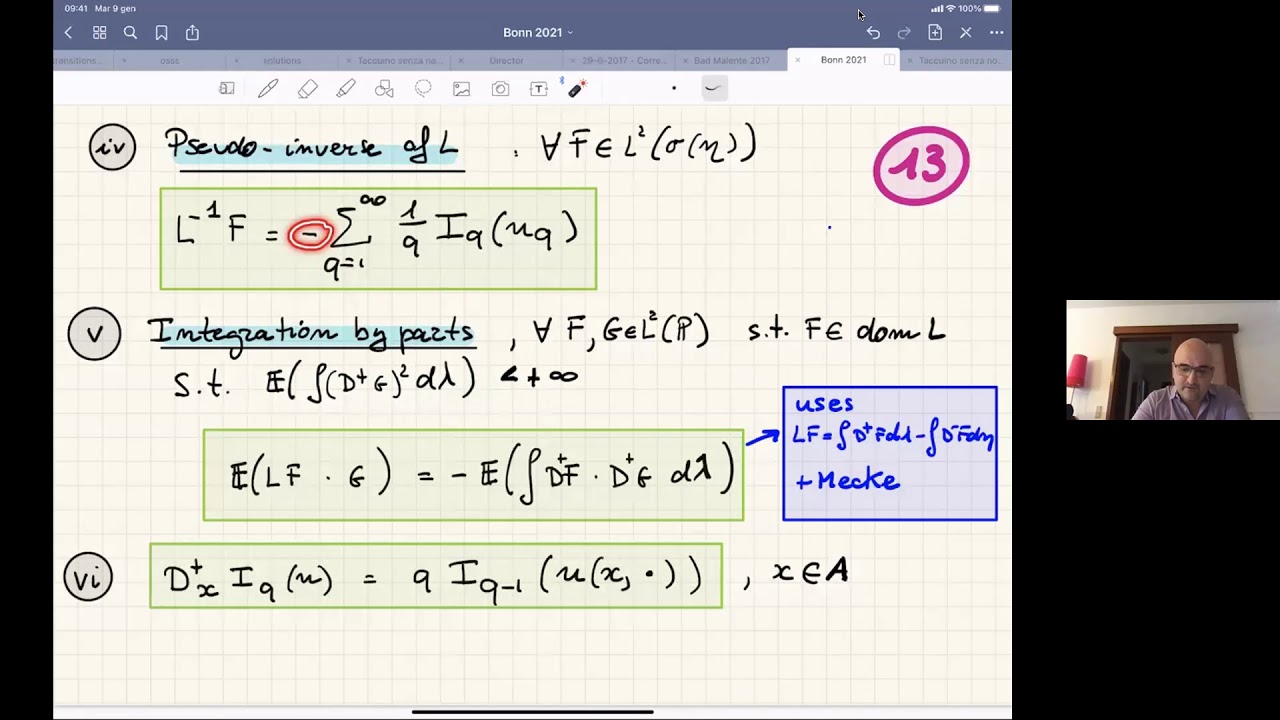 09:41 Mar 9 gen
100%
Bonn 2021
ransitions...
osss
solutions
Taccuino senza no...
Director
29-6-2017 - Corre...
Bad Malente 2017
Bonn 2021
Taccuino senza no...
iv Pseudo-inverse of L . ∀ F ∈ L²(σ(η))
13
L⁻¹F = - ∑_{q=1}^{∞} 1/q I_q(u_q)
v Integration by parts , ∀ F, G ∈ L²(ℙ) s.t. F ∈ dom L
s.t. 𝔼(∫(D⁺G)² dλ) < +∞
uses
LF = ∫D⁺Fdλ - ∫D⁻Fdη
+ Mecke
𝔼(LF · G) = - 𝔼(∫D⁺F · D⁺G dλ)
vi D⁺ₓ I_q(u) = q I_{q-1}(u(x, ·)) , x ∈ A